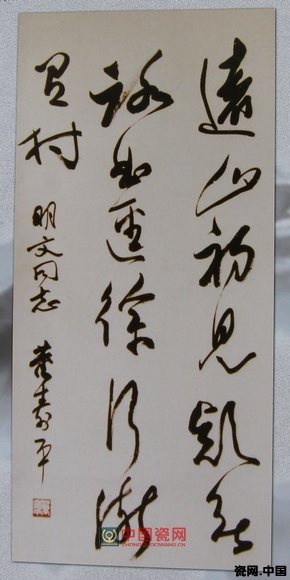 遠山初見疑無
路曲徑徐行漸
有村 明文同志 董壽平
中国瓷网
瓷网.中国